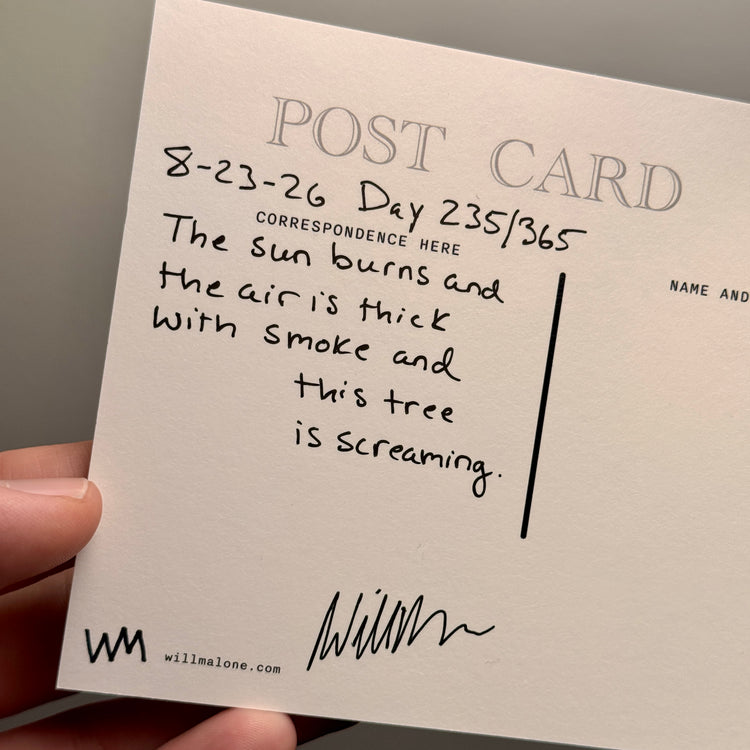 POST CARD
8-23-26 Day 235/365
CORRESPONDENCE HERE
The sun burns and
the air is thick
with smoke and
this tree
is screaming.
NAME AND
WM
willmalone.com